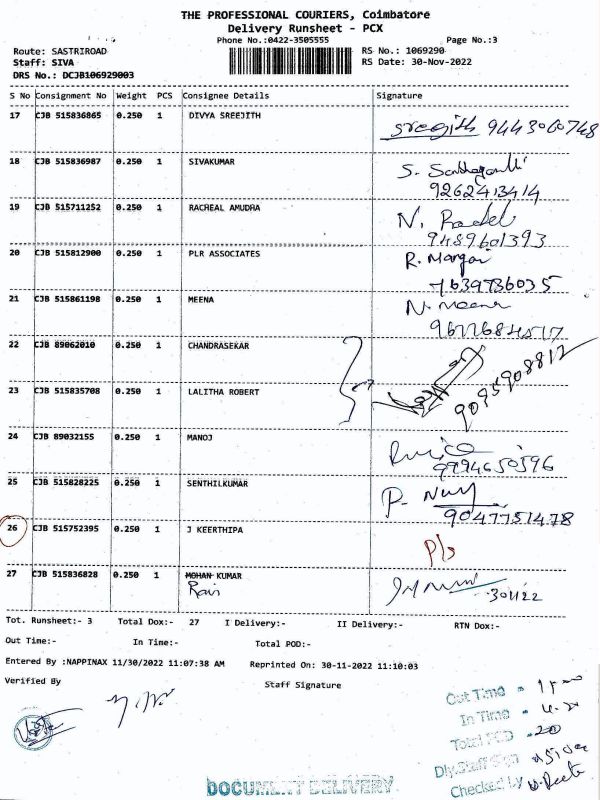 THE PROFESSIONAL COURIERS, Coimbatore
Delivery Runsheet - PCX
Phone No.:0422-3505555 Page No.:3
Route: SASTRIROAD RS No.: 1069290
Staff: SIVA RS Date: 30-Nov-2022
DRS No.: DCJB106929003
S No Consignment No Weight PCS Consignee Details Signature
17 CJB 515836865 0.250 1 DIVYA SREEJITH sreejith 9443060748
18 CJB 515836987 0.250 1 SIVAKUMAR S.
9262413414
19 CJB 515711252 0.250 1 RACHEAL AMUDRA N.
9489601393
20 CJB 515812900 0.250 1 PLR ASSOCIATES R.
7639736035
21 CJB 515861198 0.250 1 MEENA N. Meena
22 CJB 89062010 0.250 1 CHANDRASEKAR
9095908812
23 CJB 515835708 0.250 1 LALITHA ROBERT
24 CJB 89032155 0.250 1 MANOJ
9994650596
25 CJB 515828225 0.250 1 SENTHILKUMAR P.
9047751478
26 CJB 515752395 0.250 1 J KEERTHIPA
27 CJB 515836828 0.250 1 MOHAN KUMAR
Ravi 30/11/22
Tot. Runsheet:- 3 Total Dox:- 27 I Delivery:- II Delivery:- RTN Dox:-
Out Time:- In Time:- Total POD:-
Entered By :NAPPINAX 11/30/2022 11:07:38 AM Reprinted On: 30-11-2022 11:10:03
Verified By Staff Signature
Out Time
In Time
Total POD 20
Dly.Staff Sign
Checked by
DOCUMENT DELIVERY